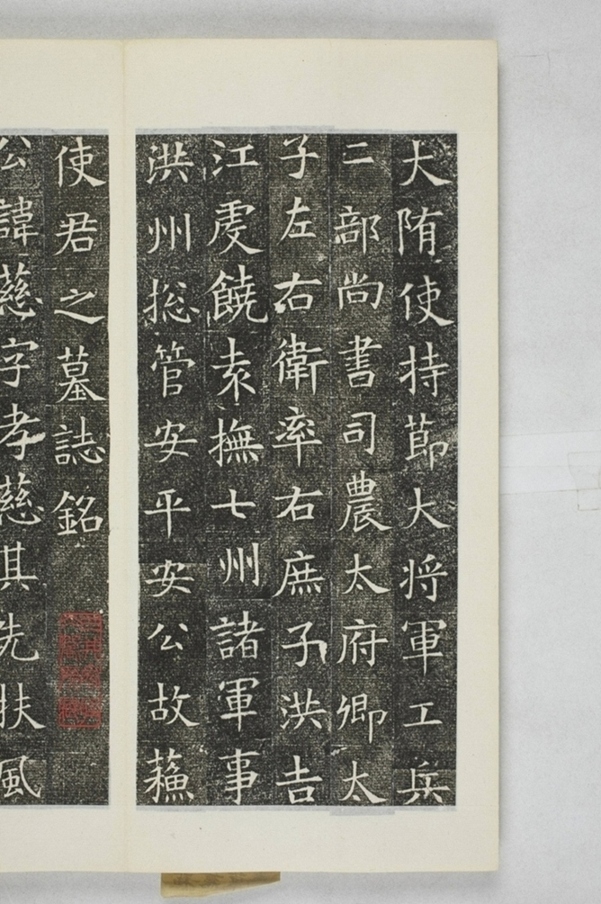 大隋使持節大将軍工兵
二部尚書司農太府卿太
子左右衛率右庶子洪吉
江虔饒袁撫七州諸軍事
洪州揔管安平安公故蘇
使君之墓誌銘
公諱慈字孝慈其先扶風